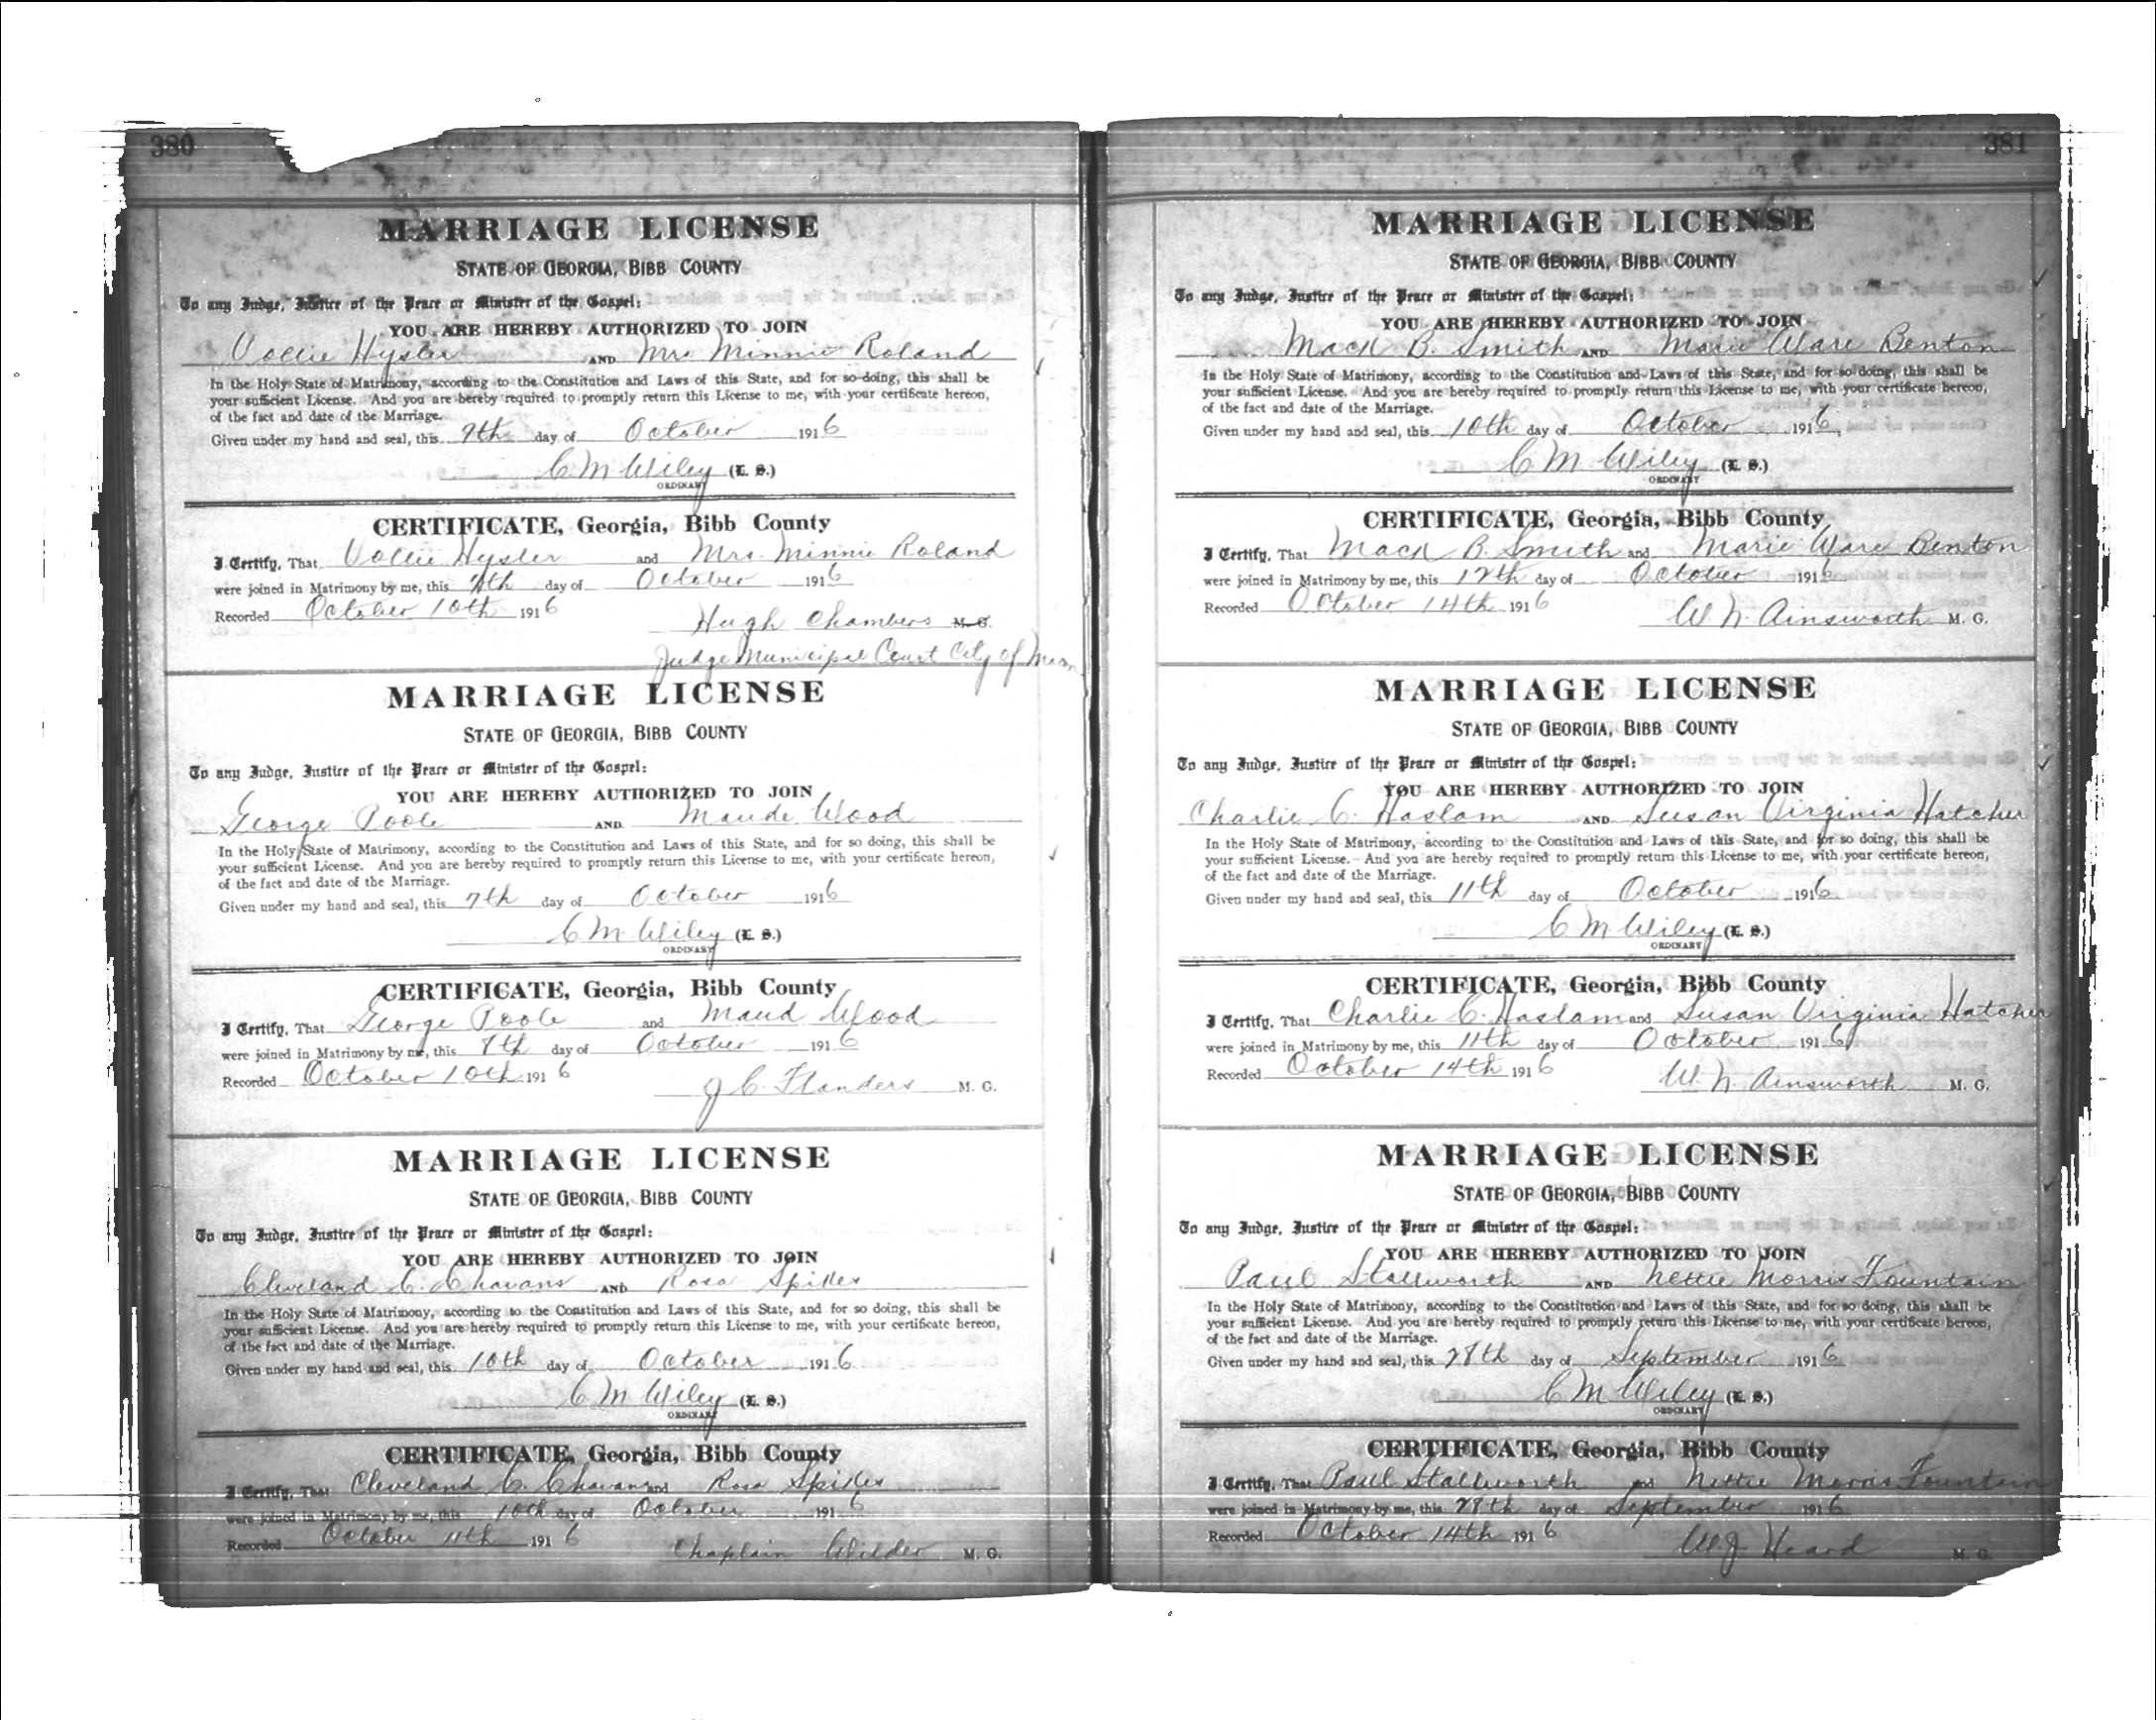 380
MARRIAGE LICENSE
STATE OF GEORGIA, BIBB COUNTY
To any Judge, Justice of the Peace or Minister of the Gospel:
YOU ARE HEREBY AUTHORIZED TO JOIN
Vollie Hysler AND Mrs Minnie Roland
In the Holy State of Matrimony, according to the Constitution and Laws of this State, and for so doing, this shall be
your sufficient License. And you are hereby required to promptly return this License to me, with your certificate hereon,
of the fact and date of the Marriage.
Given under my hand and seal, this day of October 1916
C M Wiley (L. S.)
ORDINARY
CERTIFICATE, Georgia, Bibb County
I Certify, That Vollie Hysler and Mrs. Minnie Roland
were joined in Matrimony by me, this day of October 1916
Recorded October 10th 1916
Hugh Chambers M. G.
Judge Municipal Court City of
MARRIAGE LICENSE
STATE OF GEORGIA, BIBB COUNTY
To any Judge, Justice of the Peace or Minister of the Gospel:
YOU ARE HEREBY AUTHORIZED TO JOIN
George Poole AND Maude Wood
In the Holy State of Matrimony, according to the Constitution and Laws of this State, and for so doing, this shall be
your sufficient License. And you are hereby required to promptly return this License to me, with your certificate hereon,
of the fact and date of the Marriage.
Given under my hand and seal, this 7th day of October 1916
C M Wiley (L. S.)
ORDINARY
CERTIFICATE, Georgia, Bibb County
I Certify, That George Poole and Maud Wood
were joined in Matrimony by me, this day of October 1916
Recorded October 10th 1916
J C Flanders M. G.
MARRIAGE LICENSE
STATE OF GEORGIA, BIBB COUNTY
To any Judge, Justice of the Peace or Minister of the Gospel:
YOU ARE HEREBY AUTHORIZED TO JOIN
Cleveland C. Chavans AND Rosa Spikes
In the Holy State of Matrimony, according to the Constitution and Laws of this State, and for so doing, this shall be
your sufficient License. And you are hereby required to promptly return this License to me, with your certificate hereon,
of the fact and date of the Marriage.
Given under my hand and seal, this 10th day of October 1916
C M Wiley (L. S.)
ORDINARY
CERTIFICATE, Georgia, Bibb County
I Certify, That Cleveland C. Chavans and Rosa Spikes
were joined in Matrimony by me, this 10th day of October 1916
Recorded October 11th 1916
Chaplain Wilder M. G.
381
MARRIAGE LICENSE
STATE OF GEORGIA, BIBB COUNTY
To any Judge, Justice of the Peace or Minister of the Gospel:
YOU ARE HEREBY AUTHORIZED TO JOIN
Mack B. Smith AND Marie Ware Benton
In the Holy State of Matrimony, according to the Constitution and Laws of this State, and for so doing, this shall be
your sufficient License. And you are hereby required to promptly return this License to me, with your certificate hereon,
of the fact and date of the Marriage.
Given under my hand and seal, this 10th day of October 1916
C M Wiley (L. S.)
ORDINARY
CERTIFICATE, Georgia, Bibb County
I Certify, That Mack B. Smith and Marie Ware Benton
were joined in Matrimony by me, this 12th day of October 1916
Recorded October 14th 1916
W. N. Ainsworth M. G.
MARRIAGE LICENSE
STATE OF GEORGIA, BIBB COUNTY
To any Judge, Justice of the Peace or Minister of the Gospel:
YOU ARE HEREBY AUTHORIZED TO JOIN
Charlie C. Haslam AND Susan Virginia Hatcher
In the Holy State of Matrimony, according to the Constitution and Laws of this State, and for so doing, this shall be
your sufficient License. And you are hereby required to promptly return this License to me, with your certificate hereon,
of the fact and date of the Marriage.
Given under my hand and seal, this 11th day of October 1916
C M Wiley (L. S.)
ORDINARY
CERTIFICATE, Georgia, Bibb County
I Certify, That Charlie C. Haslam and Susan Virginia Hatcher
were joined in Matrimony by me, this 11th day of October 1916
Recorded October 14th 1916
W. N. Ainsworth M. G.
MARRIAGE LICENSE
STATE OF GEORGIA, BIBB COUNTY
To any Judge, Justice of the Peace or Minister of the Gospel:
YOU ARE HEREBY AUTHORIZED TO JOIN
Paul Stallworth AND Nettie Morris Fountain
In the Holy State of Matrimony, according to the Constitution and Laws of this State, and for so doing, this shall be
your sufficient License. And you are hereby required to promptly return this License to me, with your certificate hereon,
of the fact and date of the Marriage.
Given under my hand and seal, this 28th day of September 1916
C M Wiley (L. S.)
ORDINARY
CERTIFICATE, Georgia, Bibb County
I Certify, That Paul Stallworth and Nettie Morris Fountain
were joined in Matrimony by me, this 28th day of September 1916
Recorded October 14th 1916
W J Heard M. G.